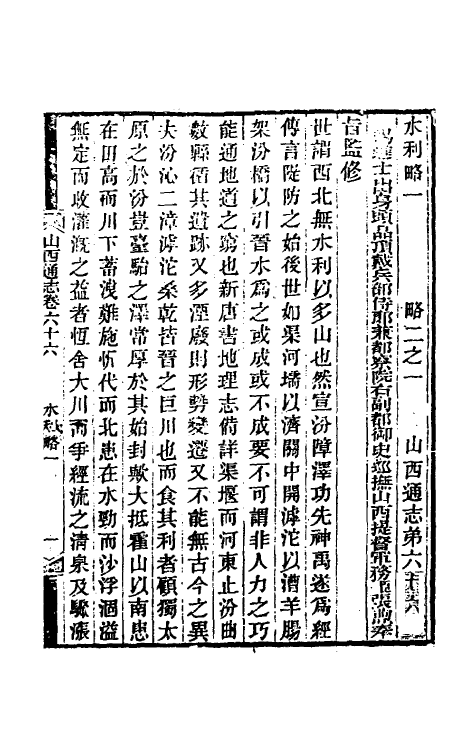 水利略一　略二之一　山西通志第六十六
賜進士出身頭品頂戴兵部侍郎兼都察院右副都御史巡撫山西提督軍務臣張煦奉
旨監修
世謂西北無水利以多山也然宣汾障澤功先神禹遂爲經
傳言隄防之始後世如渠河壖以濟關中開滹沱以漕羊腸
架汾橋以引晉水爲之或成或不成要不可謂非人力之巧
能通地道之窮也新唐書地理志備詳渠堰而河東止汾曲
數縣循其遺跡又多湮廢則形勢變遷又不能無古今之異
夫汾沁二漳滹沱桑乾皆晉之巨川也而食其利者顧獨太
原之於汾豈臺駘之澤常厚於其始封歟大抵霍山以南患
在田高而川下蓄洩難施忻代而北患在水勁而沙浮涸溢
無定而收灌漑之益者恆舍大川而爭經流之清泉及驟漲
山西通志卷六十六　水利略一　一